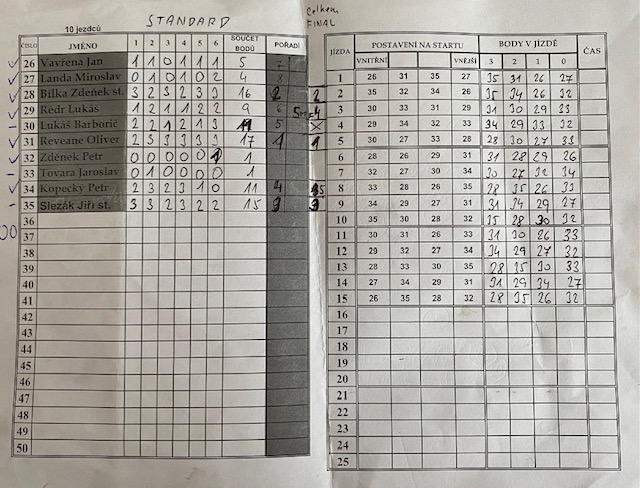 STANDARD
10 jezdců
ČÍSLO JMÉNO 1 2 3 4 5 6 SOUČET BODŮ POŘADÍ
Celkem
FINAL
26 Vavřena Jan 1 1 0 1 1 1 5 7
27 Landa Miroslav 0 1 0 1 0 2 4 8
28 Bilka Zdeněk st. 3 2 3 2 3 3 16 2 2
29 Rédr Lukáš 1 2 1 1 2 2 9 6 4
30 Lukáš Barborič 2 2 1 2 1 3 11 5 X
31 Reveane Oliver 2 3 3 3 3 3 17 1 1
32 Zdeněk Petr 0 0 0 0 0 1 1
33 Tovara Jaroslav 0 1 0 0 0 0 1
34 Kopecký Petr 2 3 2 3 1 0 11 4 5
35 Slezák Jiří st. 3 3 2 3 2 2 15 3 3
36
37
38
39
40
41
42
43
44
45
46
47
48
49
50
JÍZDA POSTAVENÍ NA STARTU BODY V JÍZDĚ ČAS
VNITŘNÍ VNĚJŠÍ 3 2 1 0
1 26 31 35 27 35 31 26 27
2 35 32 34 26 35 34 26 32
3 30 33 31 29 31 30 29 33
4 29 34 32 33 34 29 33 32
5 30 27 33 28 28 30 27 33
6 28 26 29 31 31 28 29 26
7 32 27 30 34 30 27 32 34
8 33 28 26 35 28 35 26 33
9 34 29 27 31 31 34 29 27
10 35 28 30 32 35 28 30 32
11 30 31 26 33 31 30 26 33
12 29 32 27 34 34 29 27 32
13 28 33 30 35 28 35 30 33
14 27 34 29 31 31 29 34 27
15 26 35 28 32 28 35 26 32
16
17
18
19
20
21
22
23
24
25